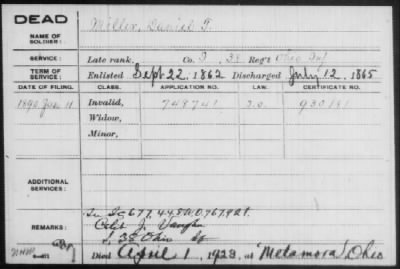 DEAD
NAME OF SOLDIER:
Miller, Daniel F.
SERVICE:
Late rank, Co. I, 38 Reg't Ohio Inf
TERM OF SERVICE:
Enlisted Sept 22, 1862 Discharged July 12, 1865
DATE OF FILING. CLASS. APPLICATION NO. LAW. CERTIFICATE NO.
1890 Invalid, 748741 930181
Widow,
Minor,
ADDITIONAL SERVICES:
REMARKS:
J. Vaughn
I, 38 Ohio
Died April 1, 1923, at Metamora, Ohio